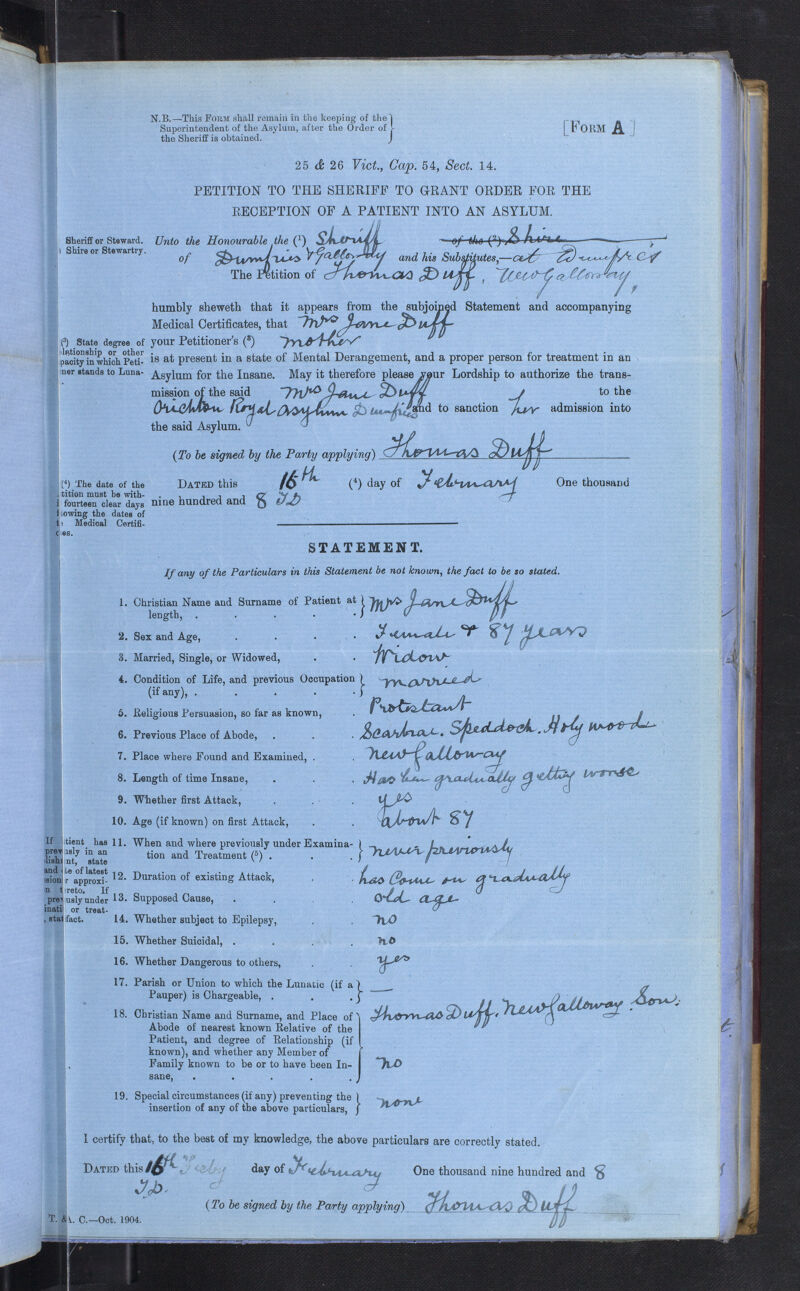 N.B.—This Form shall remain in the keeping of the
Superintendent of the Asylum, after the Order of
the Sheriff is obtained.
[Form A]
25 & 26 Vict., Cap. 54, Sect. 14.
PETITION TO THE SHERIFF TO GRANT ORDER FOR THE
RECEPTION OF A PATIENT INTO AN ASYLUM.
Sheriff or Steward.
Shire or Stewartry.
Unto the Honourable the (¹) Sheriff of the (²) Shire
of Dumfries & Galloway and his Substitutes,— at Dumfries
The Petition of Thomas Duff, New Galloway,
humbly sheweth that it appears from the subjoined Statement and accompanying
Medical Certificates, that Mrs Jane Duff
(³) State degree of
lationship or other
pacity in which Peti-
ner stands to Luna-
your Petitioner's (³) mother
is at present in a state of Mental Derangement, and a proper person for treatment in an
Asylum for the Insane. May it therefore please your Lordship to authorize the trans-
mission of the said Mrs Jane Duff to the
Crichton Royal Asylum Dumfries and to sanction her admission into
the said Asylum.
(To be signed by the Party applying) Thomas Duff
(⁴) The date of the
tition must be with-
fourteen clear days
owing the dates of
Medical Certifi-
es.
Dated this 16th (⁴) day of February One thousand
nine hundred and 8 TD
STATEMENT.
If any of the Particulars in this Statement be not known, the fact to be so stated.
1. Christian Name and Surname of Patient at
length, . . . . . Mrs Jane Duff
2. Sex and Age, . . . . Female & 87 years
3. Married, Single, or Widowed, . . Widow
4. Condition of Life, and previous Occupation
(if any), . . . . . married
5. Religious Persuasion, so far as known, . Protestant
6. Previous Place of Abode, . . . Scarbrae. Speddoch. Holywood
7. Place where Found and Examined, . . New Galloway
8. Length of time Insane, . . . Has been gradually getting worse
9. Whether first Attack, . . . yes
10. Age (if known) on first Attack, . . about 87
If tient has
previusly in an
nt, state
and te of latest
r approxi-
reto. If
previusly under
or treat-
fact.
11. When and where previously under Examina-
tion and Treatment (⁵) . . . never previously
12. Duration of existing Attack, . . has Come on gradually
13. Supposed Cause, . . . old age
14. Whether subject to Epilepsy, . . no
15. Whether Suicidal, . . . . no
16. Whether Dangerous to others, . . yes
17. Parish or Union to which the Lunatic (if a
Pauper) is Chargeable, . . . —
18. Christian Name and Surname, and Place of
Abode of nearest known Relative of the
Patient, and degree of Relationship (if
known), and whether any Member of
Family known to be or to have been In-
sane, . . . . .
Thomas Duff. New Galloway. Son.
no
19. Special circumstances (if any) preventing the
insertion of any of the above particulars, none
I certify that, to the best of my knowledge, the above particulars are correctly stated.
Dated this 16th Feby day of February One thousand nine hundred and 8
T.D.
(To be signed by the Party applying) Thomas Duff
T. & A. C.—Oct. 1904.